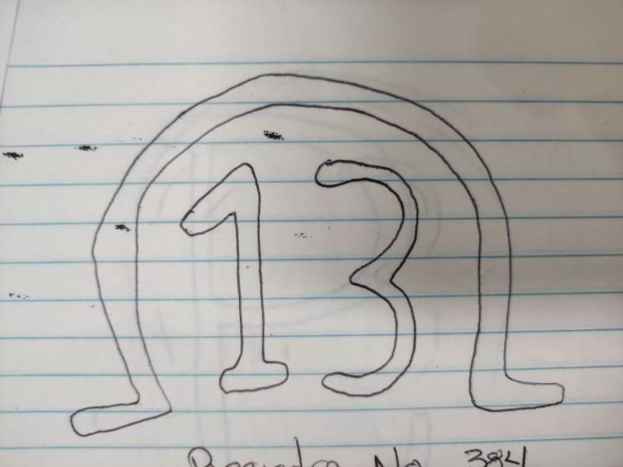 13
No 384